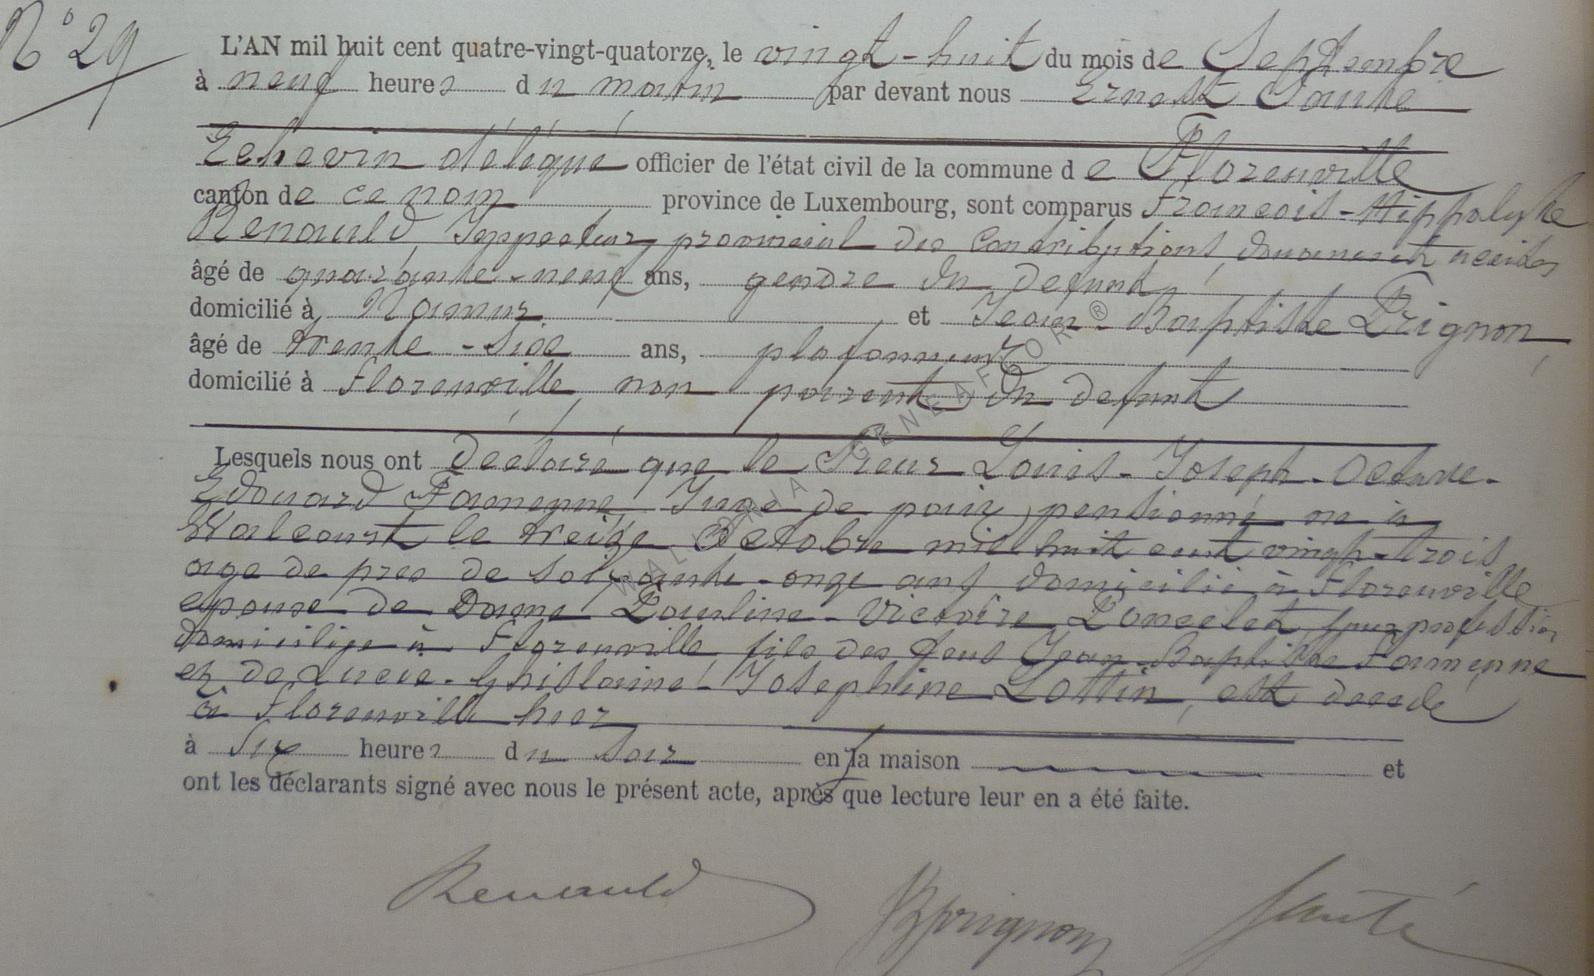 N° 29
L'AN mil huit cent quatre-vingt-quatorze, le vingt-huit du mois de Septembre
à neuf heures du matin par devant nous Ernest Santé
Echevin délégué officier de l'état civil de la commune de Florenville
canton de ce nom province de Luxembourg, sont comparus François-Hippolyte
Renauld, Inspecteur provincial des Contributions, douanes et accises
âgé de quarante-neuf ans, gendre du défunt,
domicilié à Namur et Jean-Baptiste Prignon,
âgé de trente-six ans, plafonneur
domicilié à Florenville, non parent du défunt
Lesquels nous ont déclaré que le Sieur Louis-Joseph-Octave-
Edouard Famenne, Juge de paix, pensionné né à
Walcourt le treize Octobre mil huit cent vingt-trois
age de pres de soixante-onze ans domicilié à Florenville
epoux de Dame Pauline-Victoire Poncelet, sans profession
domiciliée à Florenville fils des feus Jean Baptiste Famenne
et de Lucie-Ghislaine-Josephine Lottin, est decede
à Florenville hier
à six heures du soir en la maison et
ont les déclarants signé avec nous le présent acte, après que lecture leur en a été faite.
WALLONIA GENEAFLOR ®
Renauld JBPrignon Santé